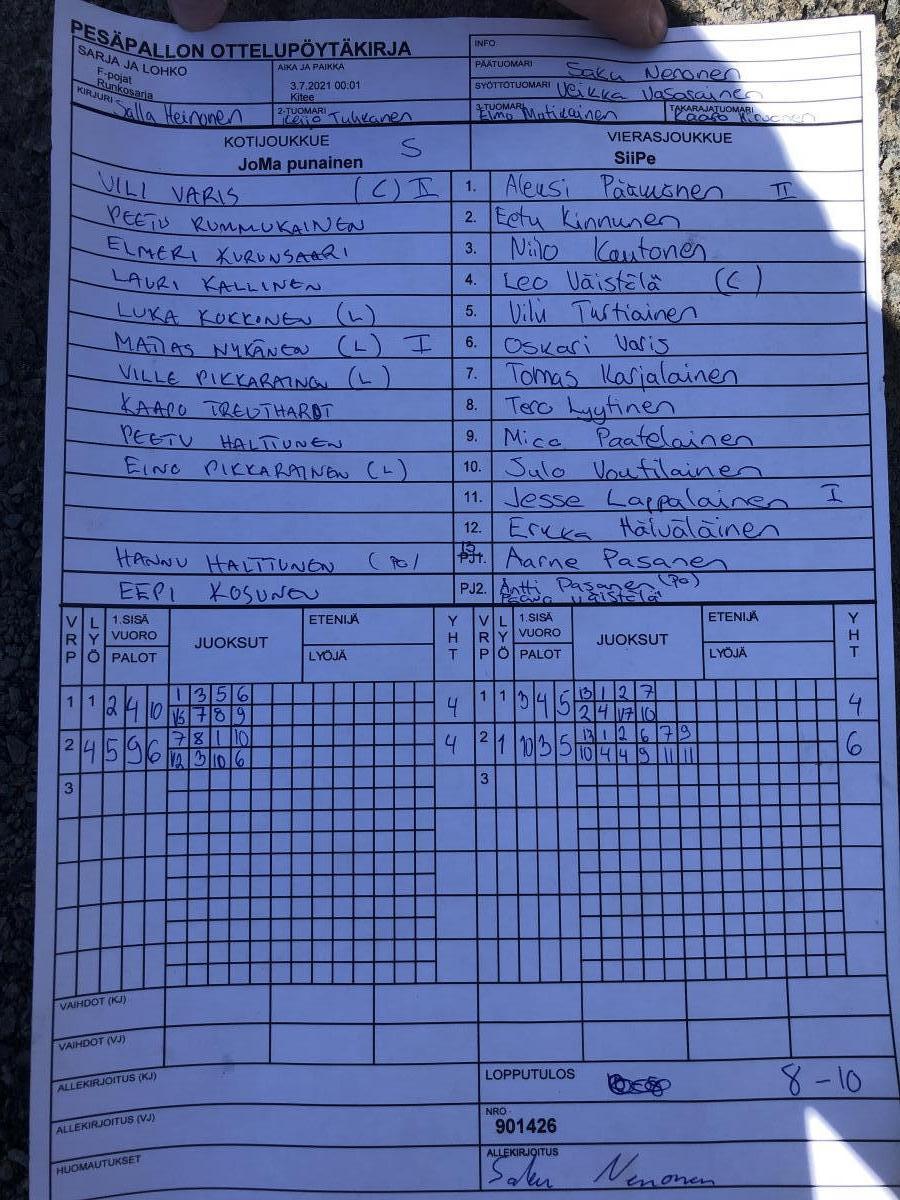 PESÄPALLON OTTELUPÖYTÄKIRJA
SARJA JA LOHKO
F-pojat
Runkosarja
AIKA JA PAIKKA
3.7.2021 00:01
Kitee
INFO
PÄÄTUOMARI Saku Nenonen
SYÖTTÖTUOMARI Veikka Vasarainen
KIRJURI Salla Heinonen
2-TUOMARI Keijo Tuhkanen
3-TUOMARI Elmo Matikainen
TAKARAJATUOMARI Kaapo
KOTIJOUKKUE S
JoMa punainen
VIERASJOUKKUE
SiiPe
VILI VARIS (C) II 1. Aleksi Pääkkönen II
PEETU RUMMUKAINEN 2. Eetu Kinnunen
ELMERI KURUNSAARI 3. Niilo Kautonen
LAURI KALLINEN 4. Leo Väistölä (C)
LUKA KOKKONEN (L) 5. Vilu Turtiainen
MATIAS NYKÄNEN (L) I 6. Oskari Varis
VILLE PIKKARAINEN (L) 7. Tomas Karjalainen
KAAPO TREUTHARDT 8. Tero Lyytinen
PEETU HALTTUNEN 9. Mico Paatelainen
EINO PIKKARAINEN (L) 10. Julo Voutilainen
11. Jesse Lappalainen I
12. Erkka Hälväläinen
HANNU HALTTUNEN (PO) 13 PJ1. Aarne Pasanen
EEPI KOSUNEN PJ2. Antti Pasanen (PO)
Väistölä
VRP LYÖ 1.SISÄ VUORO PALOT JUOKSUT ETENIJÄ LYÖJÄ YHT VRP LYÖ 1.SISÄ VUORO PALOT JUOKSUT ETENIJÄ LYÖJÄ YHT
1 1 2 4 10 1 3 5 6 4 1 1 3 4 5 13 1 2 7 4
V5 7 8 9 2 4 V7 10
2 4 5 9 6 7 8 1 10 4 2 1 10 3 5 13 1 2 6 7 9 6
V2 3 10 6 10 4 4 9 11 11
3 3
VAIHDOT (KJ)
VAIHDOT (VJ)
ALLEKIRJOITUS (KJ)
LOPPUTULOS 8-10
ALLEKIRJOITUS (VJ)
NRO
901426
HUOMAUTUKSET
ALLEKIRJOITUS
Saku Nenonen